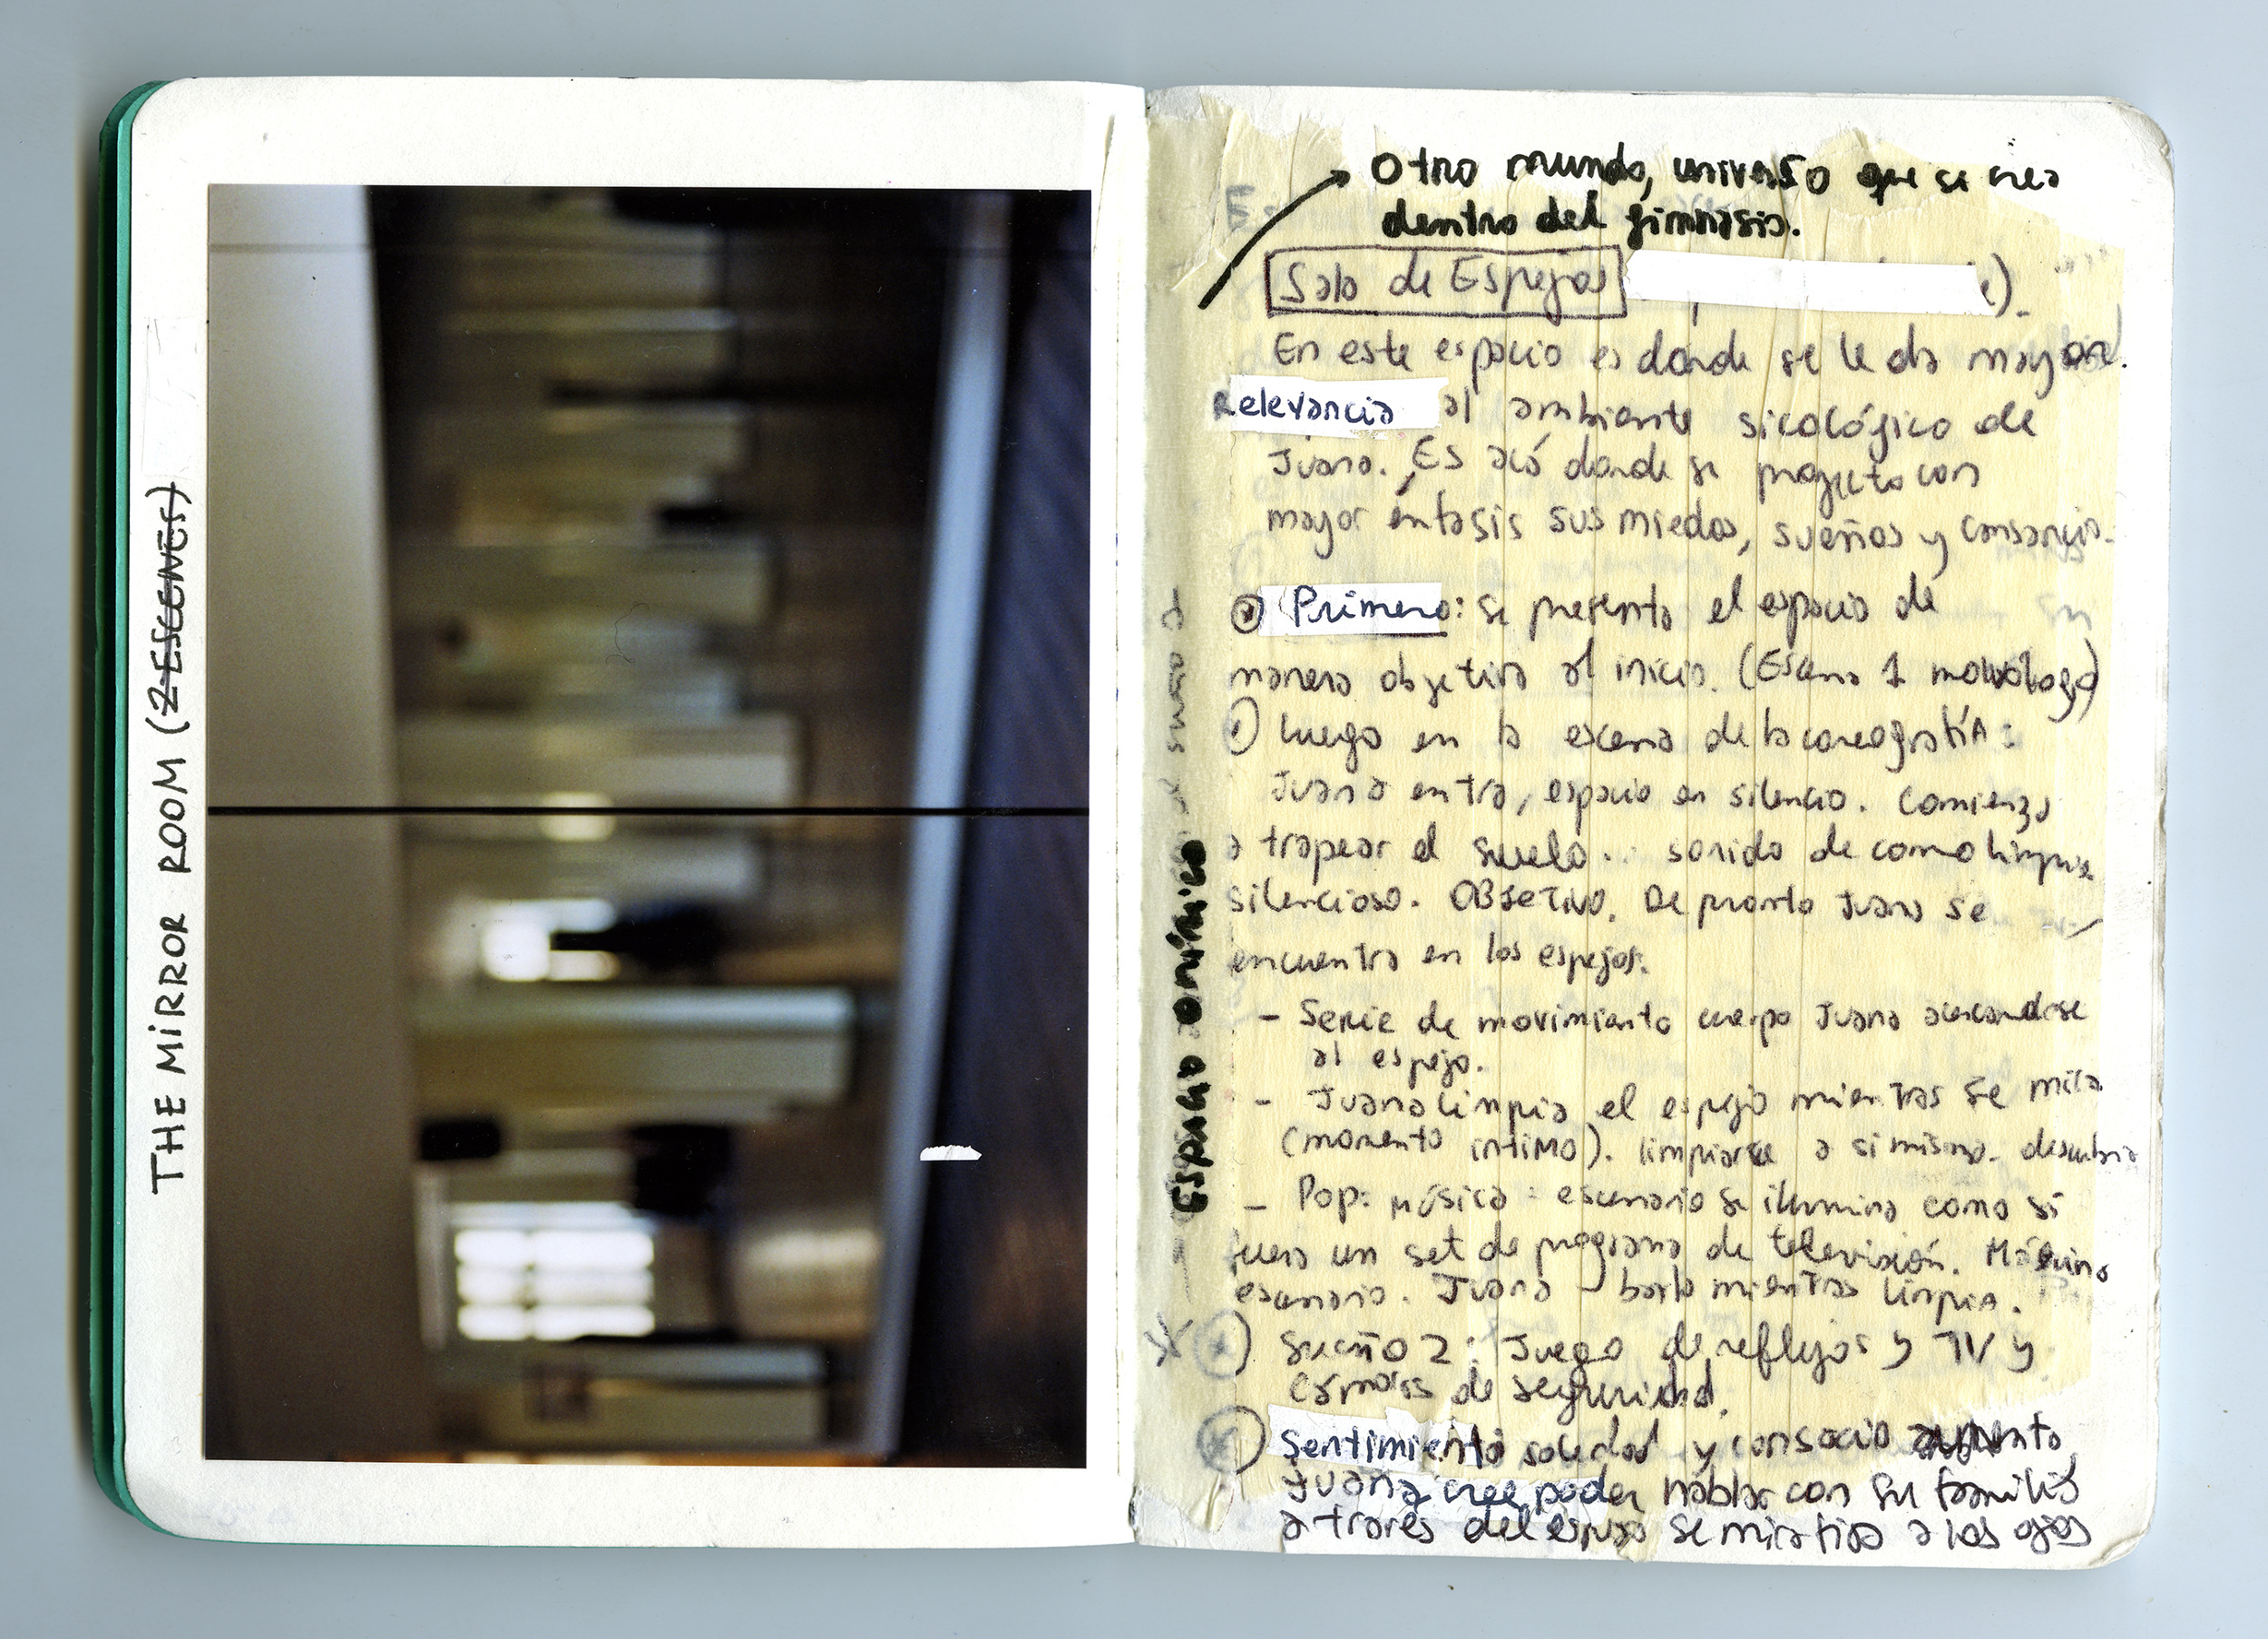 THE MIRROR ROOM (2 ESCENES)
Otro mundo, universo que se crea
dentro del gimnasio.
Sala de Espejos
En este espacio es donde se le da mayor
Relevancia al ambiente sicológico de
Juana. Es acá donde se proyecta con
mayor énfasis sus miedos, sueños y cansancio.
Primero: se presenta el espacio de
manera objetiva al inicio. (Escena 1 monólogo)
Luego en la escena de la coreografía:
Juana entra, espacio en silencio. Comienza
a trapear el suelo... sonido de como limpia
silencioso. OBJETIVO. De pronto Juana se
encuentra en los espejos:
- Serie de movimiento cuerpo Juana acercandose
al espejo.
- Juana limpia el espejo mientras se mira
(momento intimo). limpiarse a si misma.
- Pop: Música: escenario se ilumina como si
fuera un set de programa de televisión.
escenario. Juana baila mientras limpia.
Sueño 2: Juego de reflejos y TV y
cámaras de seguridad.
Sentimiento soledad y cansacio
Juana cree poder hablar con su familia
a través del espejo se mira fijo a los ojos
Espacio onírico